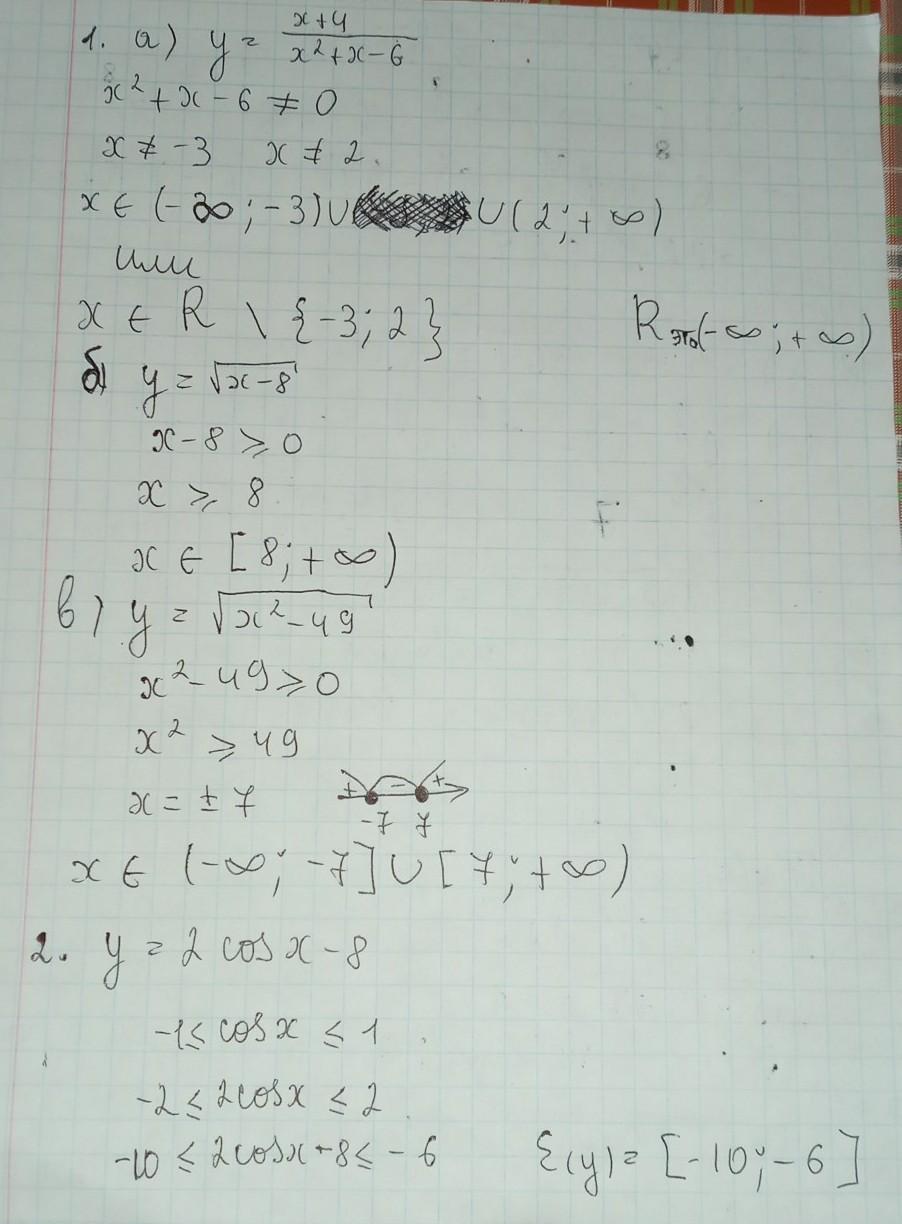 1. а) y = (x+4)/(x²+x-6)
x²+x-6 ≠ 0
x ≠ -3   x ≠ 2
x ∈ (-∞; -3)∪ ∪(2; +∞)
или
x ∈ R \ {-3; 2}   R это (-∞; +∞)
б) y = √(x-8)
x-8 ⩾ 0
x ⩾ 8
x ∈ [8; +∞)
в) y = √(x²-49)
x²-49 ⩾ 0
x² ⩾ 49
x = ± 7   + - +
-7 7
x ∈ (-∞; -7]∪[7; +∞)
2. y = 2 cos x - 8
-1 ≤ cos x ≤ 1
-2 ≤ 2cos x ≤ 2
-10 ≤ 2cos x - 8 ≤ -6   E(y) = [-10; -6]